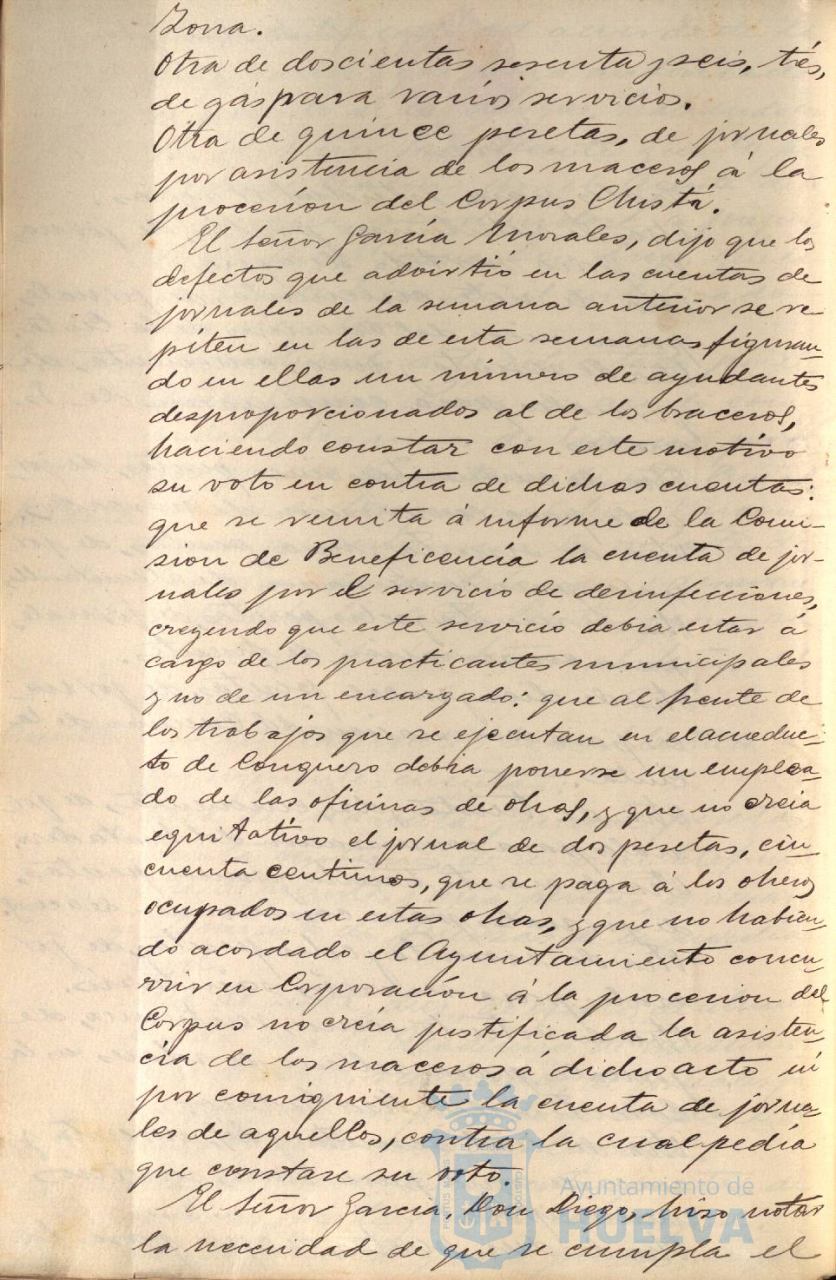 Zona.
Otra de doscientas sesenta y seis, tres,
de gas para varios servicios.
Otra de quince pesetas, de jornales
por asistencia de los maceros á la
procesion del Corpus Christi.
El Señor García Morales, dijo que los
defectos que advirtió en las cuentas de
jornales de la semana anterior se re
piten en las de esta semana figuran-
do en ellas un número de ayudantes
desproporcionados al de los braceros,
haciendo constar con este motivo
su voto en contra de dichas cuentas:
que se remita á informe de la Comi-
sion de Beneficencia la cuenta de jor-
nales por el servicio de desinfecciones,
creyendo que este servicio debia estar á
cargo de los practicantes municipales
y no de un encargado: que al frente de
los trabajos que se ejecutan en el acueduc-
to de Conquero debia ponerse un emplea-
do de las oficinas de obras, y que no creia
equitativo el jornal de dos pesetas, cin-
cuenta centimos, que se paga á los obreros
ocupados en estas obras, y que no habien-
do acordado el Ayuntamiento concu-
rrir en Corporación á la procesion del
Corpus no creía justificada la asisten-
cia de los maceros á dicho acto ni
por consiguiente la cuenta de jorna-
les de aquellos, contra la cual pedía
que constase su voto.
El Señor García, Don Diego, hizo notar
la necesidad de que se cumpla el
Ayuntamiento de
HUELVA